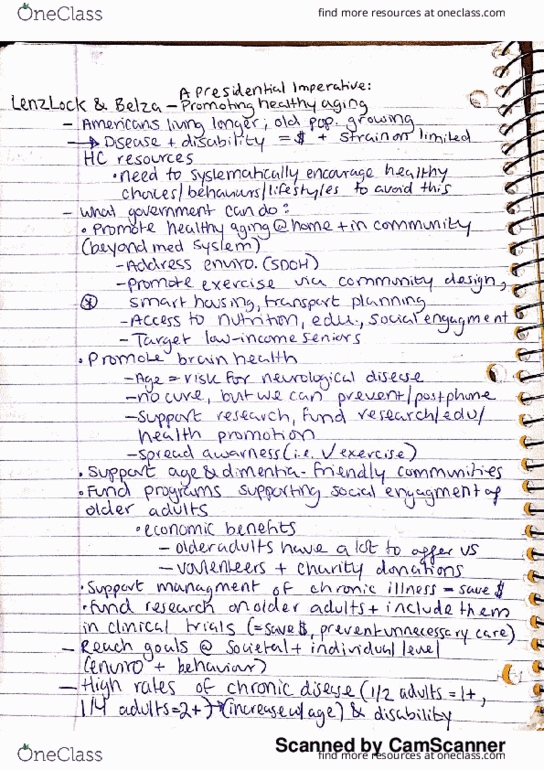 OneClass
find more resources at oneclass.com
A Presidential Imperative:
Lenzlock & Belza – Promoting healthy aging
– Americans living longer, old pop. growing
–→ Disease + disability = $ + strain on limited
HC resources
• need to systematically encourage healthy
choices/behaviours/lifestyles to avoid this
– What government can do:
• Promote healthy aging @ home + in community
(beyond med system)
– Address enviro. (SDOH)
– Promote exercise via community design,
* smart housing, transport planning
– Access to nutrition, edu., social engagment
– Target low-income seniors
• Promote brain health
– Age = risk for neurological disease
– no cure, but we can prevent/postphone
– Support research, fund research/edu/
health promotion
– spread awarness (i.e. √ exercise)
• Support age & dimentia-friendly communities
• Fund programs supporting social engagment of
older adults
• economic benefits
– older adults have a lot to offer us
– vounteers + charity donations
• Support managment of chronic illness = save $
• Fund research on older adults + include them
in clinical trials (= save $, prevent unnecessary care)
– Reach goals @ societal + individual level
(enviro + behaviour)
– High rates of chronic disease (1/2 adults = 1+,
1/4 adults = 2+) → (increase w/ age) & disability
Scanned by CamScanner
OneClass
find more resources at oneclass.com